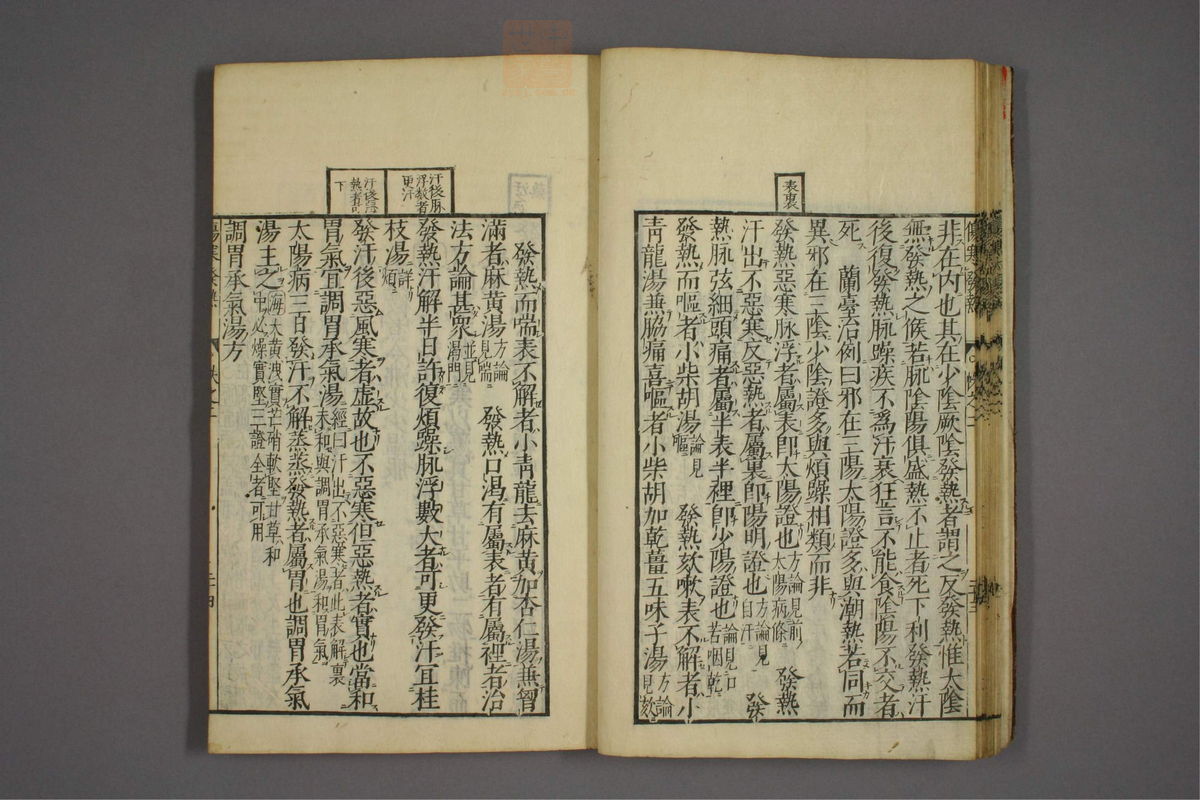 表裏
非在内也其在少陰厥陰發熱者謂之反發熱惟太陰
無發熱之候若脉陰陽俱盛熱不止者死下利發熱汗
後復發熱脉躁疾不爲汗衰狂言不能食陰陽不交者
死　蘭臺治例曰邪在三陽太陽證多與潮熱若同而
異邪在三陰少陰證多與煩躁相類而非
發熱惡寒脉浮者屬表即太陽證也方論見前太陽病條　發熱
汗出不惡寒反惡熱者屬裏即陽明證也方論見自汗　發
熱脉弦細頭痛者屬半表半裡即少陽證也論見口若咽乾
發熱而嘔者小柴胡湯論見嘔　發熱欬嗽表不解者小
青龍湯無脇痛喜嘔者小柴胡加乾薑五味子湯方論見欬
汗後脉浮數者更汗
汗後惡熱者可下
發熱而喘表不解者小青龍去麻黄加杏仁湯無智
滿者麻黄湯方論見喘　發熱口渇有屬表者有屬裡者治
法方論甚衆並見渇門
發熱汗解半日許復煩躁脉浮數大者可更發汗宜桂
枝湯詳煩
發汗後惡風寒者虚故也不惡寒但惡熱者實也當和
胃氣宜調胃承氣湯經曰汗出不惡寒者此表解裏未和與調胃承氣湯和胃氣
太陽病三日發汗不解蒸蒸發熱者屬胃也調胃承氣
湯主之海大黄洩實芒硝軟堅甘草和中必燥實堅三證全者可用
調胃承氣湯方